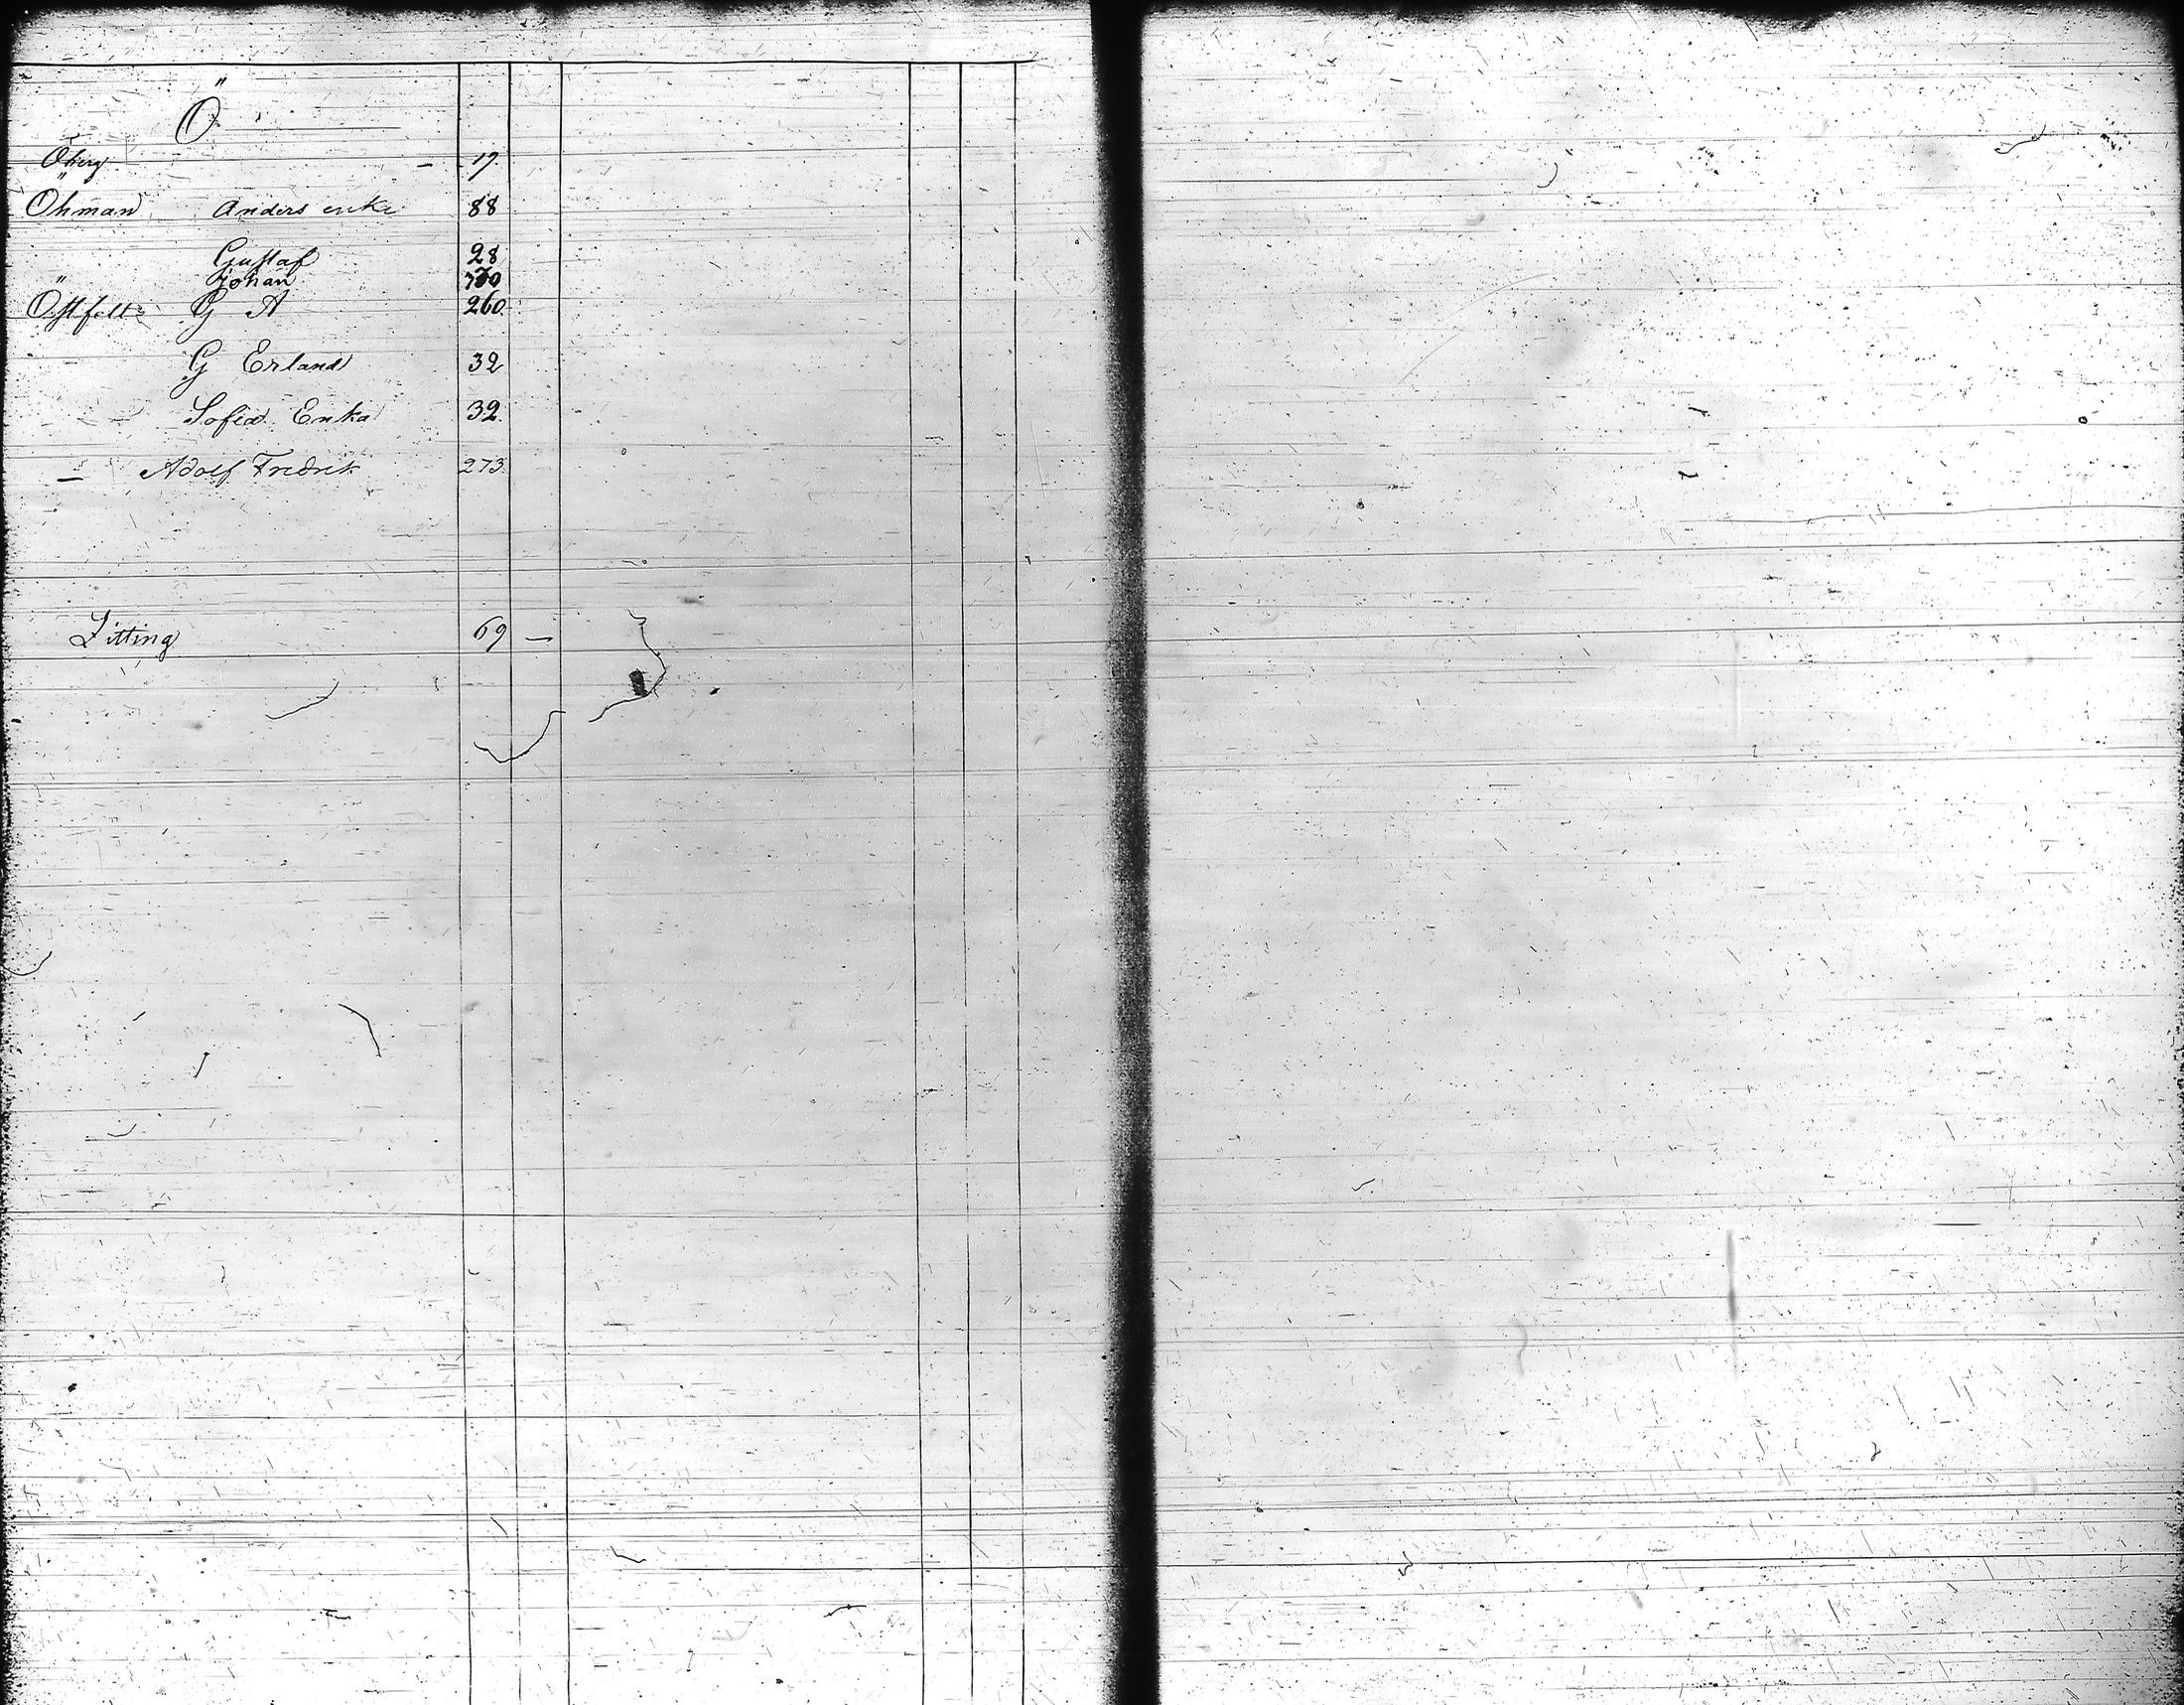 Ö
Öberg — 19.
Öhman Anders enka 88
Gustaf 28
Johan
Östfelt G A 260.
G Erland 32
Sofia Enka 32.
— Adolf Fredrik 273.
Litting 69 —